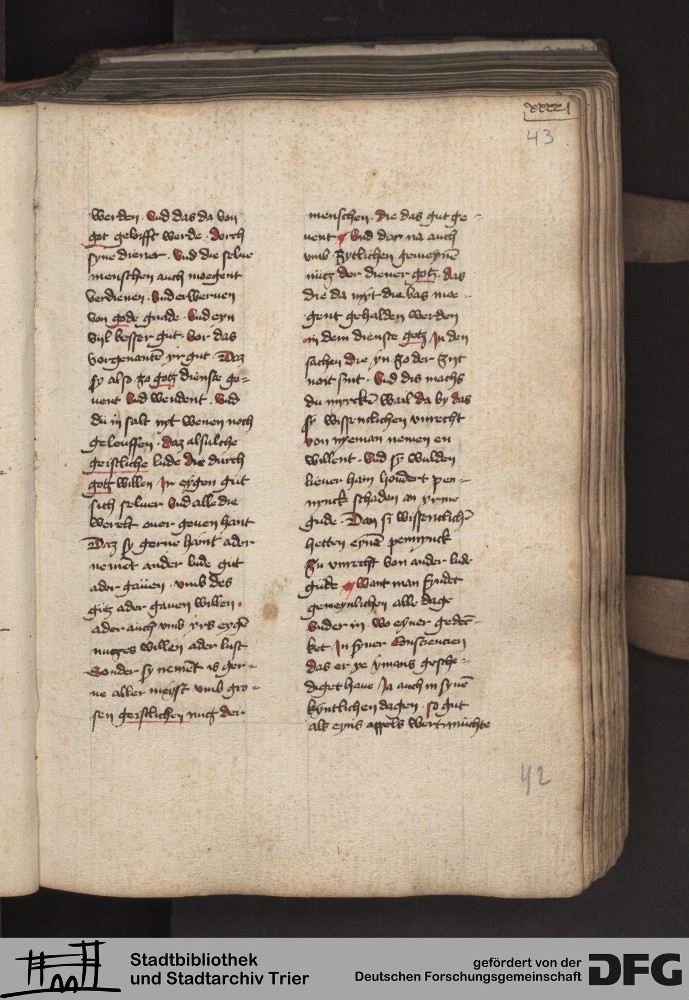 xxxxi
43
werden · Vnd das da von
got gelofft werde · durch
syne diener · Vnd die selue
menschen auch moegent
verdienen · Vnd erwerven
von gode gnade · Vnd eyn
vijl besser gut · Vor das
vorgenante yr gut · Daz
sy also zo gotz dienste ge-
uent Vnd wendent · Vnd
du in salt nyt wenen noch
geleuffen · daz alsulche
geistliche lude die durch
gotz willen In eygen gut
sich seluer Vnd alle die
werelt ouer geuen hant
Daz sy gerne hant ader
nement ander lude gut
ader gauen · vmb des
gutz ader gauen willen ·
ader auch vmb yrs eygen
nutzes willen ader lust
Sonder sy nement is ger-
ne aller meyst vmb gro-
sen geistlichen nutz der
menschen · Die das gut ge-
uent · Vnd dar na auch
vmb zytlichen gemeynen
nutz der diener gotz · das
die da myt die bas moe-
gent gehalden werden
in dem dienste gotz In den
sachen die yn zo der zyt
noit sint · Vnd dis machs
du myrcken wail da by das
sy wissentlichen vnrecht
von nyeman nemen en
willent · Vnd sy wulden
lieuer han hondert pen-
nynck schaden an yrme
gude · Dan sy wissentlich
hetten eynen pennynck
zu vnrecht von ander lude
gude · Want man fyndet
gemeynlichen alle dage
Vnder in · wo eyner geden-
ket In syner Consciencien
das er ye ymans gesche-
diget haue Ja auch in synen
kyntlichen dagen · so gut
als eyns appels wert muchte
42
Stadtbibliothek
und Stadtarchiv Trier
gefördert von der
Deutschen Forschungsgemeinschaft
DFG